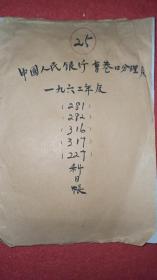 25
中国人民银行曹巷口分理处
一九六二年度
(281)
(282)
(316)
(317)
(227)
科目帳